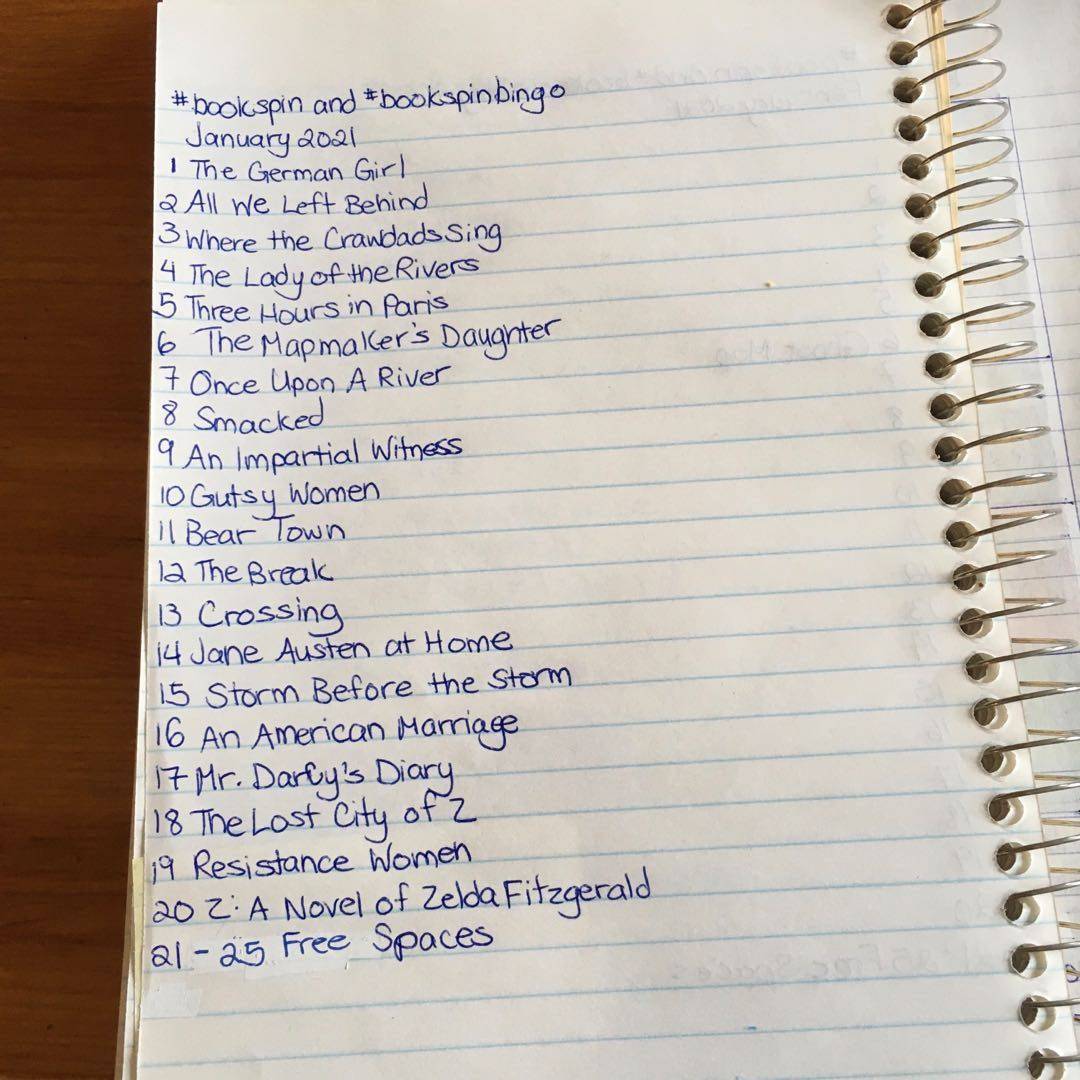 #bookspin and #bookspinbingo
January 2021
1 The German Girl
2 All We Left Behind
3 Where the Crawdads Sing
4 The Lady of the Rivers
5 Three Hours in Paris
6 The Mapmaker's Daughter
7 Once Upon A River
8 Smacked
9 An Impartial Witness
10 Gutsy Women
11 Bear Town
12 The Break
13 Crossing
14 Jane Austen at Home
15 Storm Before the Storm
16 An American Marriage
17 Mr. Darcy's Diary
18 The Lost City of Z
19 Resistance Women
20 Z: A Novel of Zelda Fitzgerald
21-25 Free Spaces